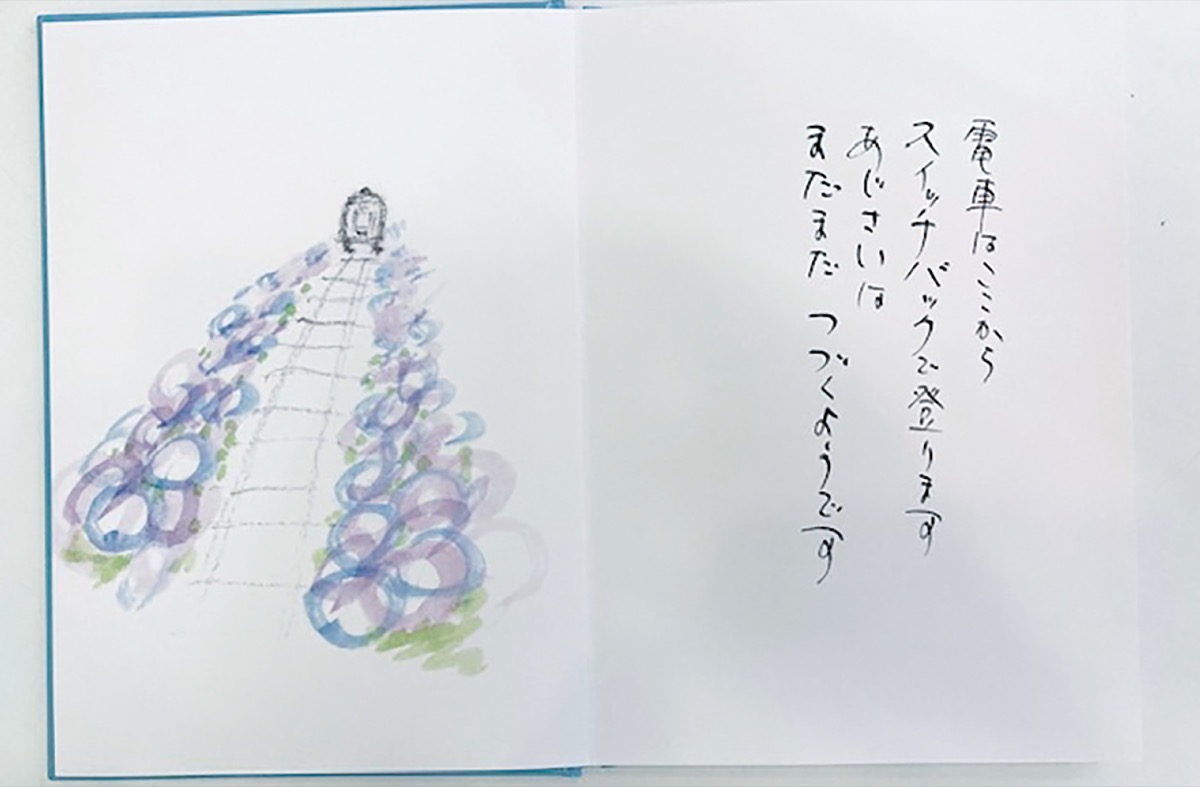 電車はここから
スイッチバックで登ります
あじさいは
まだまだ つづくようです